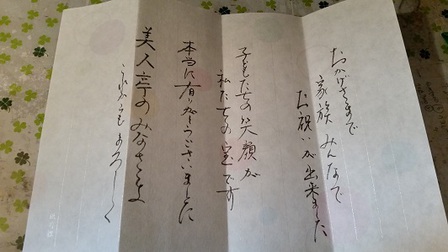 おかげさまで
家族 みんなで
お祝いが出来ました
子どもたちの笑顔が
私たちの宝です
本当に有りがとうございました
美人亭のみなさま
これからもよろしく